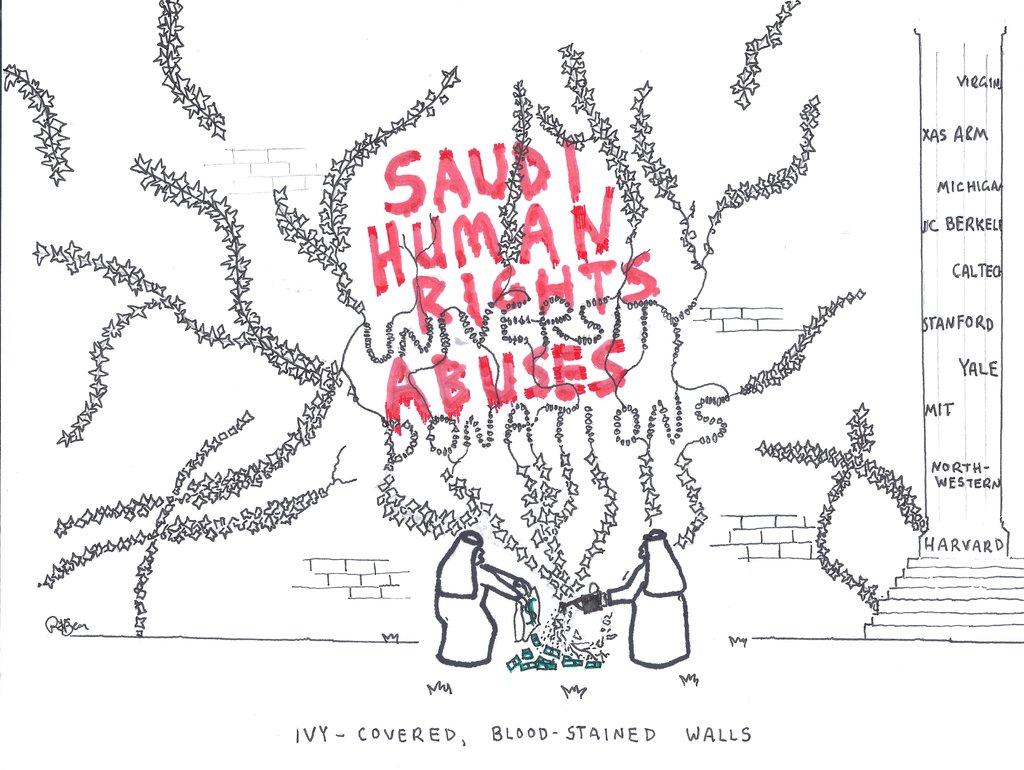 SAUDI
HUMAN
RIGHTS
ABUSES
VIRGIN
XAS A&M
MICHIGA
UC BERKEL
CALTEC
STANFORD
YALE
MIT
NORTH-
WESTERN
HARVARD
IVY-COVERED, BLOOD-STAINED WALLS